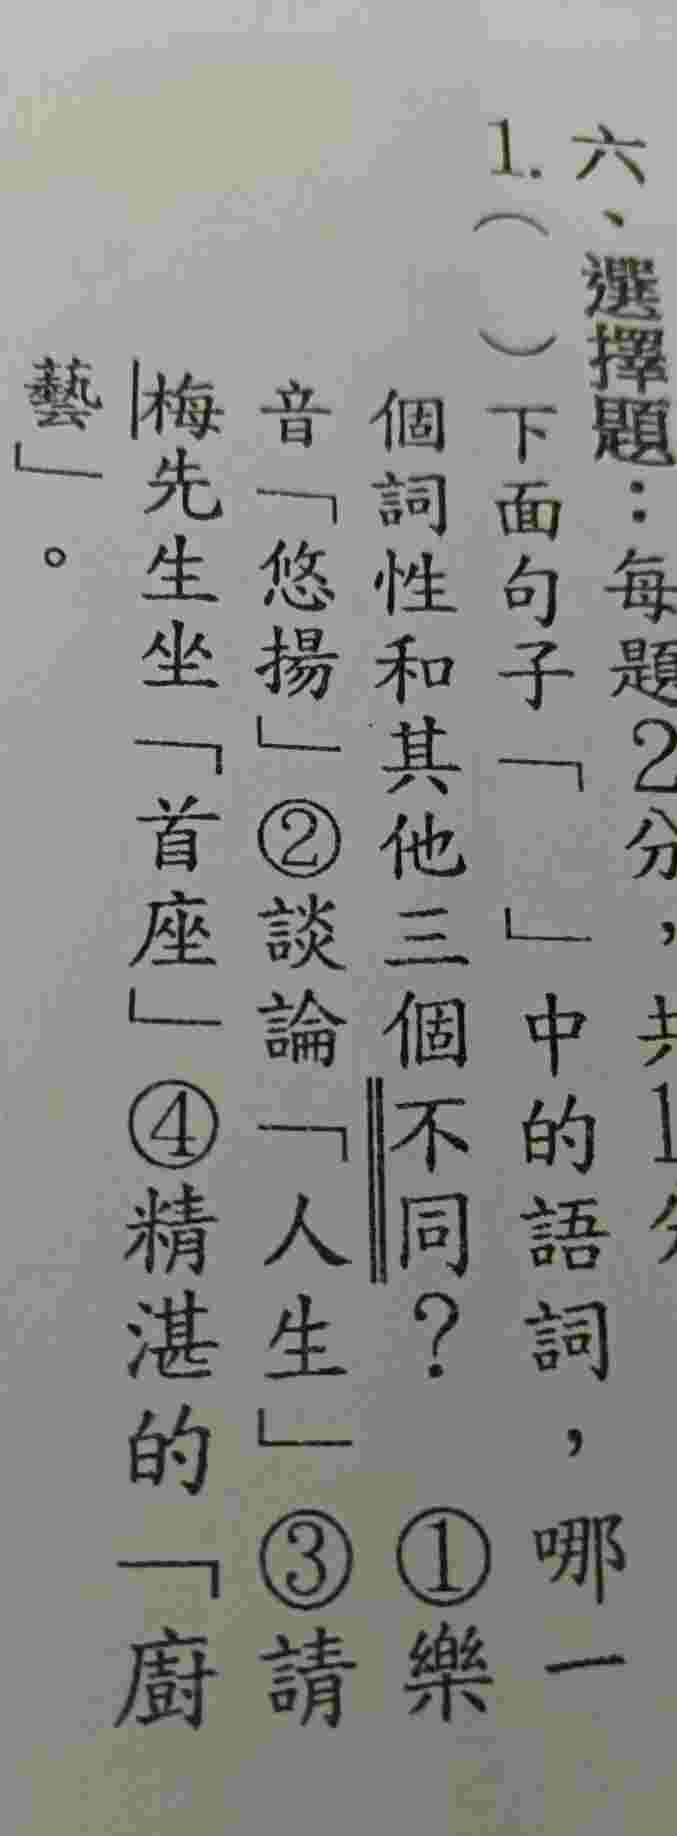 六、選擇題：每題2分，共1分
1.（　）下面句子「　」中的語詞，哪一
個詞性和其他三個不同？　①樂
音「悠揚」②談論「人生」③請
梅先生坐「首座」④精湛的「廚
藝」。